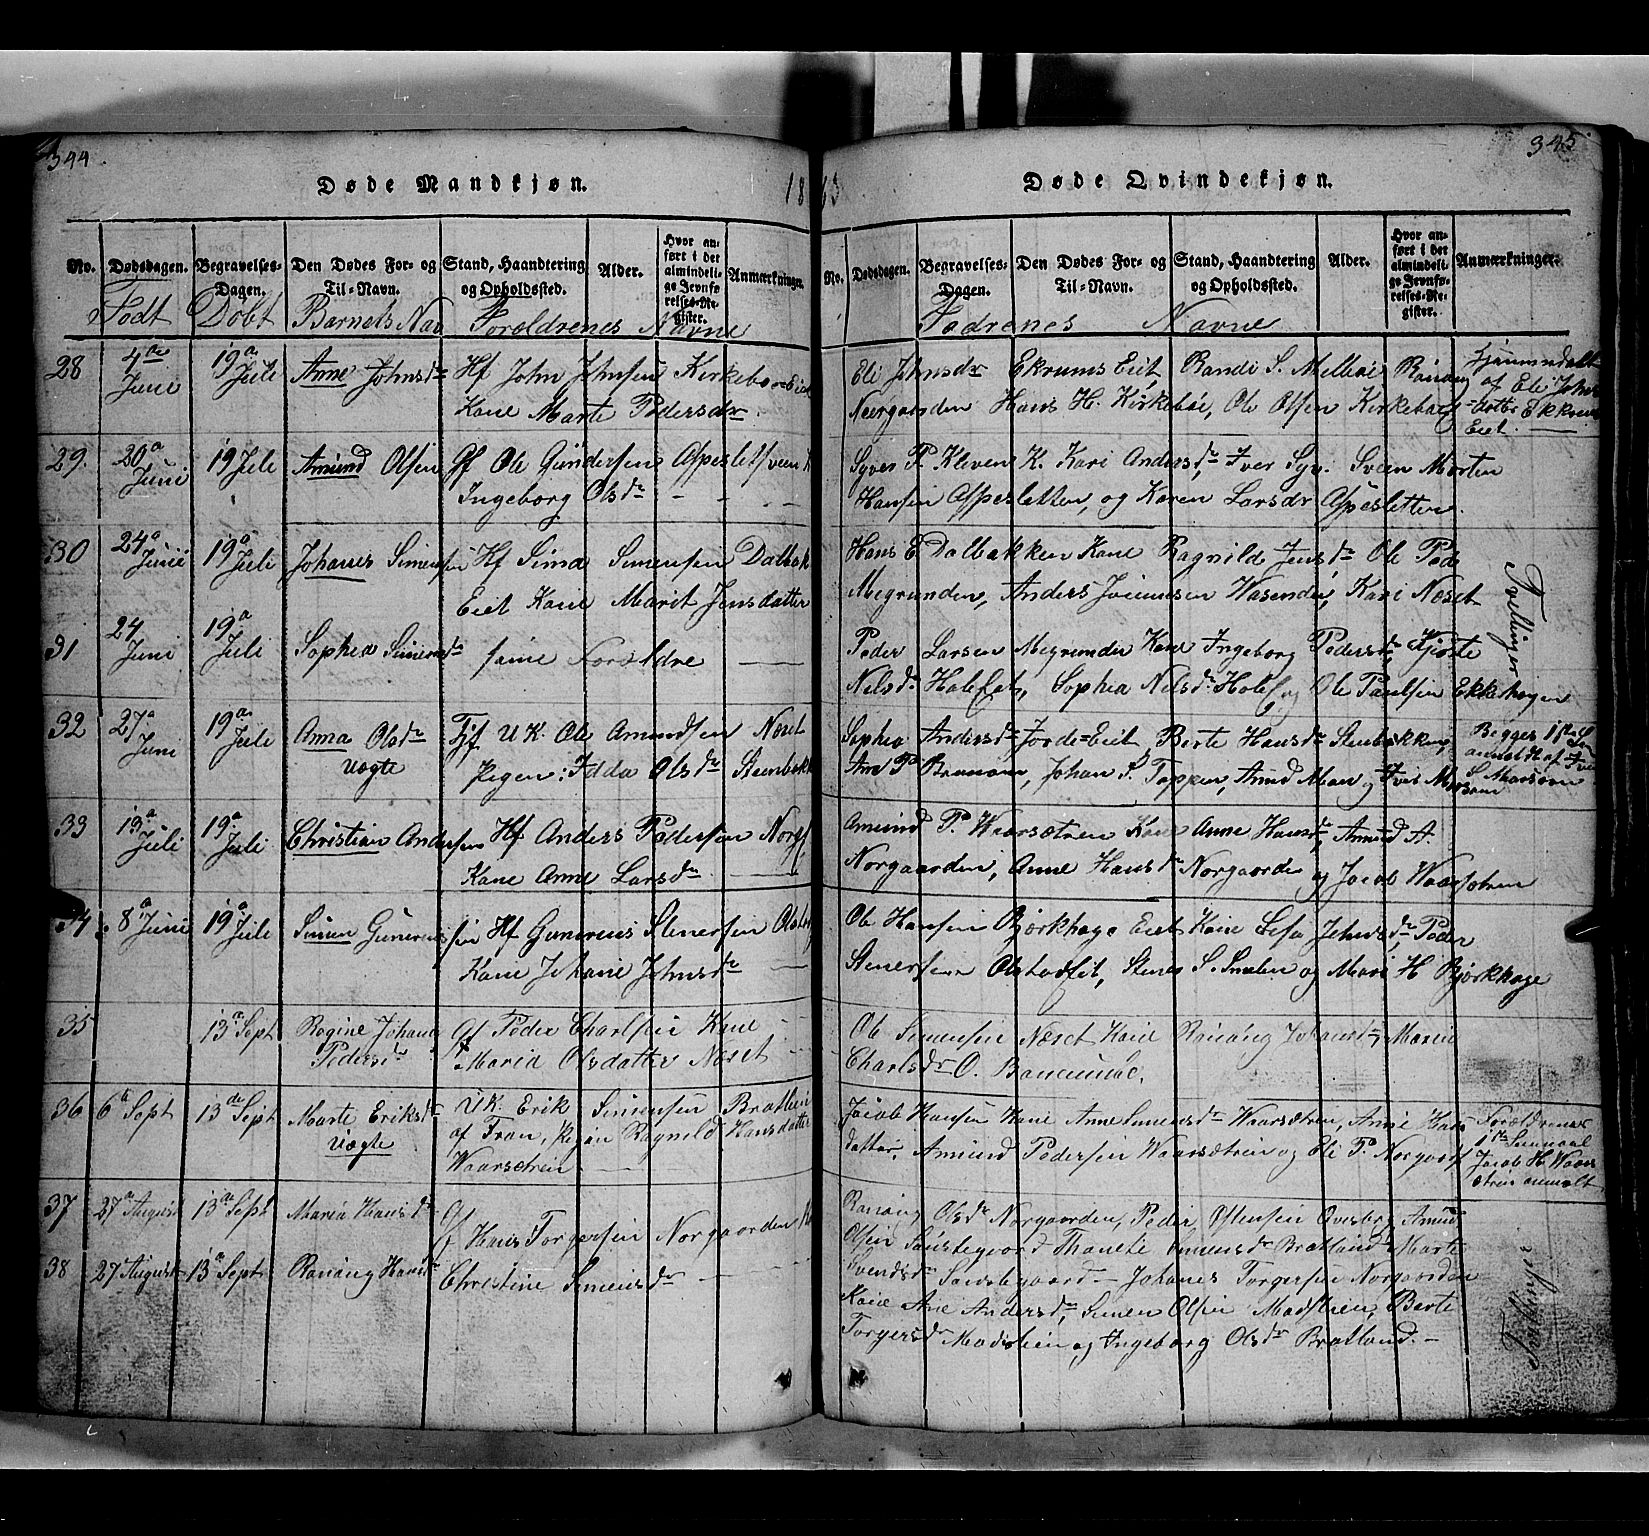 344
Døde Mandkjøn.
18
No. Dødsdagen. Begravelses-Dagen. Den Dødes For- og Til-Navn. Stand, Haandtering og Opholdssted. Alder. Hvor anført i det almindelige Jevnførelses-Register. Anmærkninger.
Født Døbt Barnets Nav Forældrenes Navne
28 4de Juni 19a Juli Anne Johnsdr Hf John Johnsen Kirkeboe=Eiet
Kone Marte Pedersdr
29. 20a Juni 19 Juli Amund Olsen Gf Ole Gundersen Aspesletsveen
Ingeborg Olsdr
30 24a Juni 19a Juli Johanes Simensen Hf Simen Simensen Dalbak
Eiet Kone Marit Jensdatter
31 24 Juni 19a Juli Sophea Simensdr samme Foreldre
32 27a Juni 19a Juli Anna Olsdr Uægte Tjf UK. Ole Amundsen Næset
Pigen: Idda Olsdr Steenbakk
33 13a Juli 19a Juli Christian Andersen Hf Anders Pedersen Norg
Kone Anne Larsdr
34 8a Juni 19a Juli Simen Gunerius sen Hf Gunerius Stenersen Olstad
Kone Johane Johnsdr
35 13a Sept Regine Johane Pedersdr Gf Peder Charlsen Kone
Maria Olsdatter Næset
36 6a Sept 13de Sept Marte Eriksdr Uægte UK. Erik Simensen Bratlien
af Fron, Pigen Ragnild Hansdatter
Waarsætren
37 27a August 13de Sept Maria Hansdr Gf Hans Torgersen Norgaarden
38 27 August 13a Sept Ranang Hansdr Christine Simensdr
345
63
Døde Qvindekjøn.
No. Dødsdagen. Begravelses-Dagen. Den Dødes For- og Til-Navn. Stand, Haandtering og Opholdssted. Alder. Hvor anført i det almindelige Jevnførelses-Register. Anmærkninger.
Fadrenes Navne
Eli Johnsdr Ekrums Eiet, Randi S. Melbøe Ranang Hjemmedøbt
Neergaarden Hans H. Kirkebøe, Ole Olsen Kirkeboe af Eli Johnsdatter Ekrum Eiet.
Syver P. Kleven K. Kari Andersdr Iver Syv. Sveen Morten
Hansen Aspesletten, og Karen Larsdr Aspesletten.
Hans E Dalbakken Kone Ragnild Jensdr Ole Ped
Megrunden, Anders Wasenden, Kari Næset
Peder Larsen Megrunden Kone Ingeborg Pedersdr, Kjerste
Nelsdr Hole Eet, Sophia Nelsdr Hole og Ole Paulsen Ekkehagen
Tvellinger
Sophea Andersdr Jorde=Eiet, Berte Hansdr Stenbakken,
Ane P. Johan S. Toppen, Amund Moen og Iver Morsveen
Begges 1ste anmeldt af Iver S Morsveen
Amund P. Waarsætren Kone Anne Hansdr, Amund A.
Norgaarden, Anne Hansdr Norgaarden og Jacob Waarsætren
Ole Hansen Bjørkhage Eiet Kone Lisa Johnsdr, Peder
Stenersen Olstadeiet, Stener S. og Mari H Bjørkhage
Ole Simensen Næset Kone Ranang Johansdr, Maren
Charlsdr O.
Jacob Hansen Kone Anne Simensdr Waarsætren, Anne Hans
datter, Amund Pedersen Waarsætren og Eli P. Norgaard
Forældrenes 1ste Leiermaal Jacob H Waarsætren anmeldt.
Ranang Olsdr Norgaarden, Peder Ostensen Qvesberg, Amund
Olsen Sønstegaard Thanete Simensdr Bratland, Marte
Svendsdr Sønstegaard – Johanes Torgersen Norgaarden
Kone Ane Andersdr, Simen Olsen Madslien, Berte
Torgersdr Madslien og Ingeborg Olsdr Bratland. –
Tvillinger